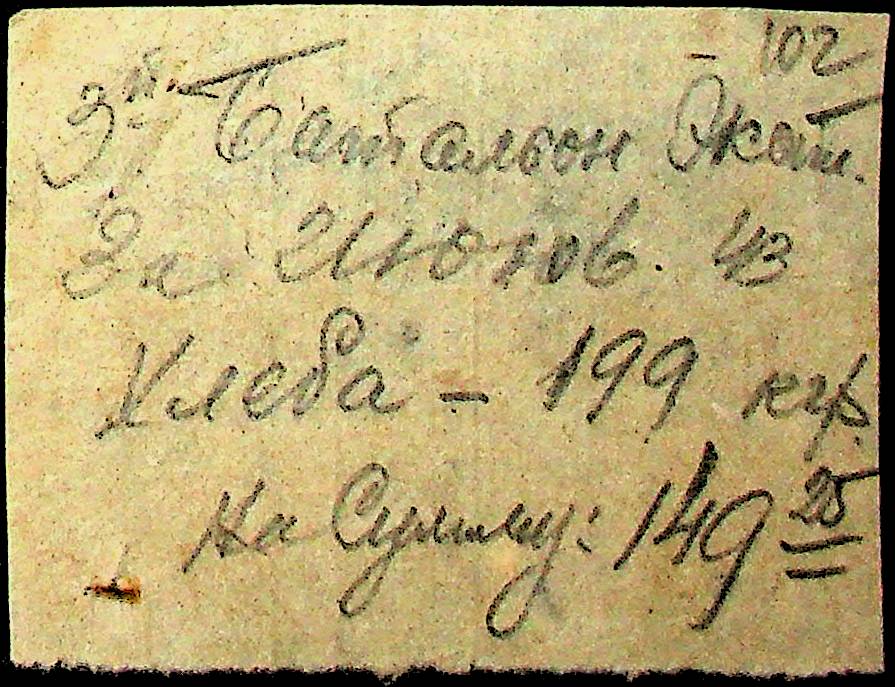 102
3й Батальон Экат.
За Июнь. 43
Хлеба - 199 кгр.
На Сумму: 149 25